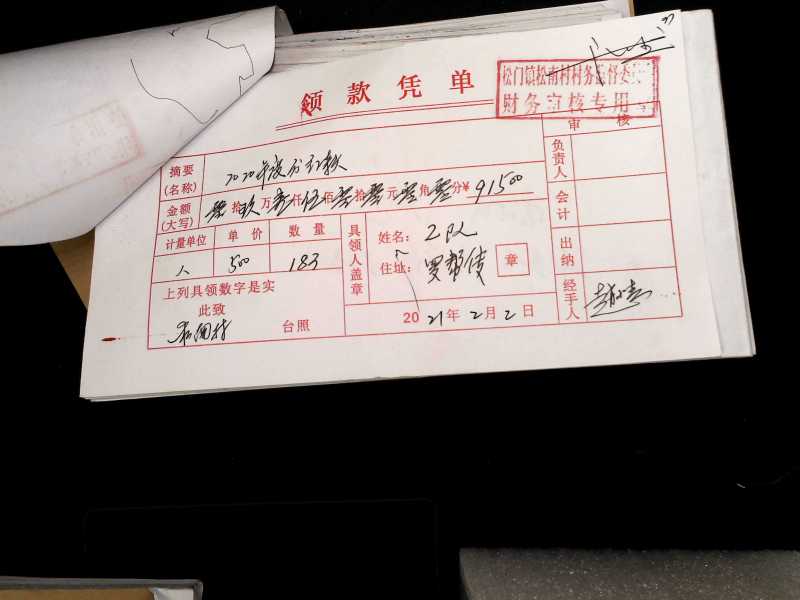 领款凭单
松门镇松南村村务监督委
财务审核专用
审核
摘要(名称) 2020年度分红款
金额(大写) 拾玖万壹仟伍佰零拾零元零角零分¥91500
计量单位 单价 数量
人 500 183
具领人盖章
姓名: 2队
住址:
章
上列具领数字是实
此致
台照
2021年2月2日
负责人
会计
出纳
经手人